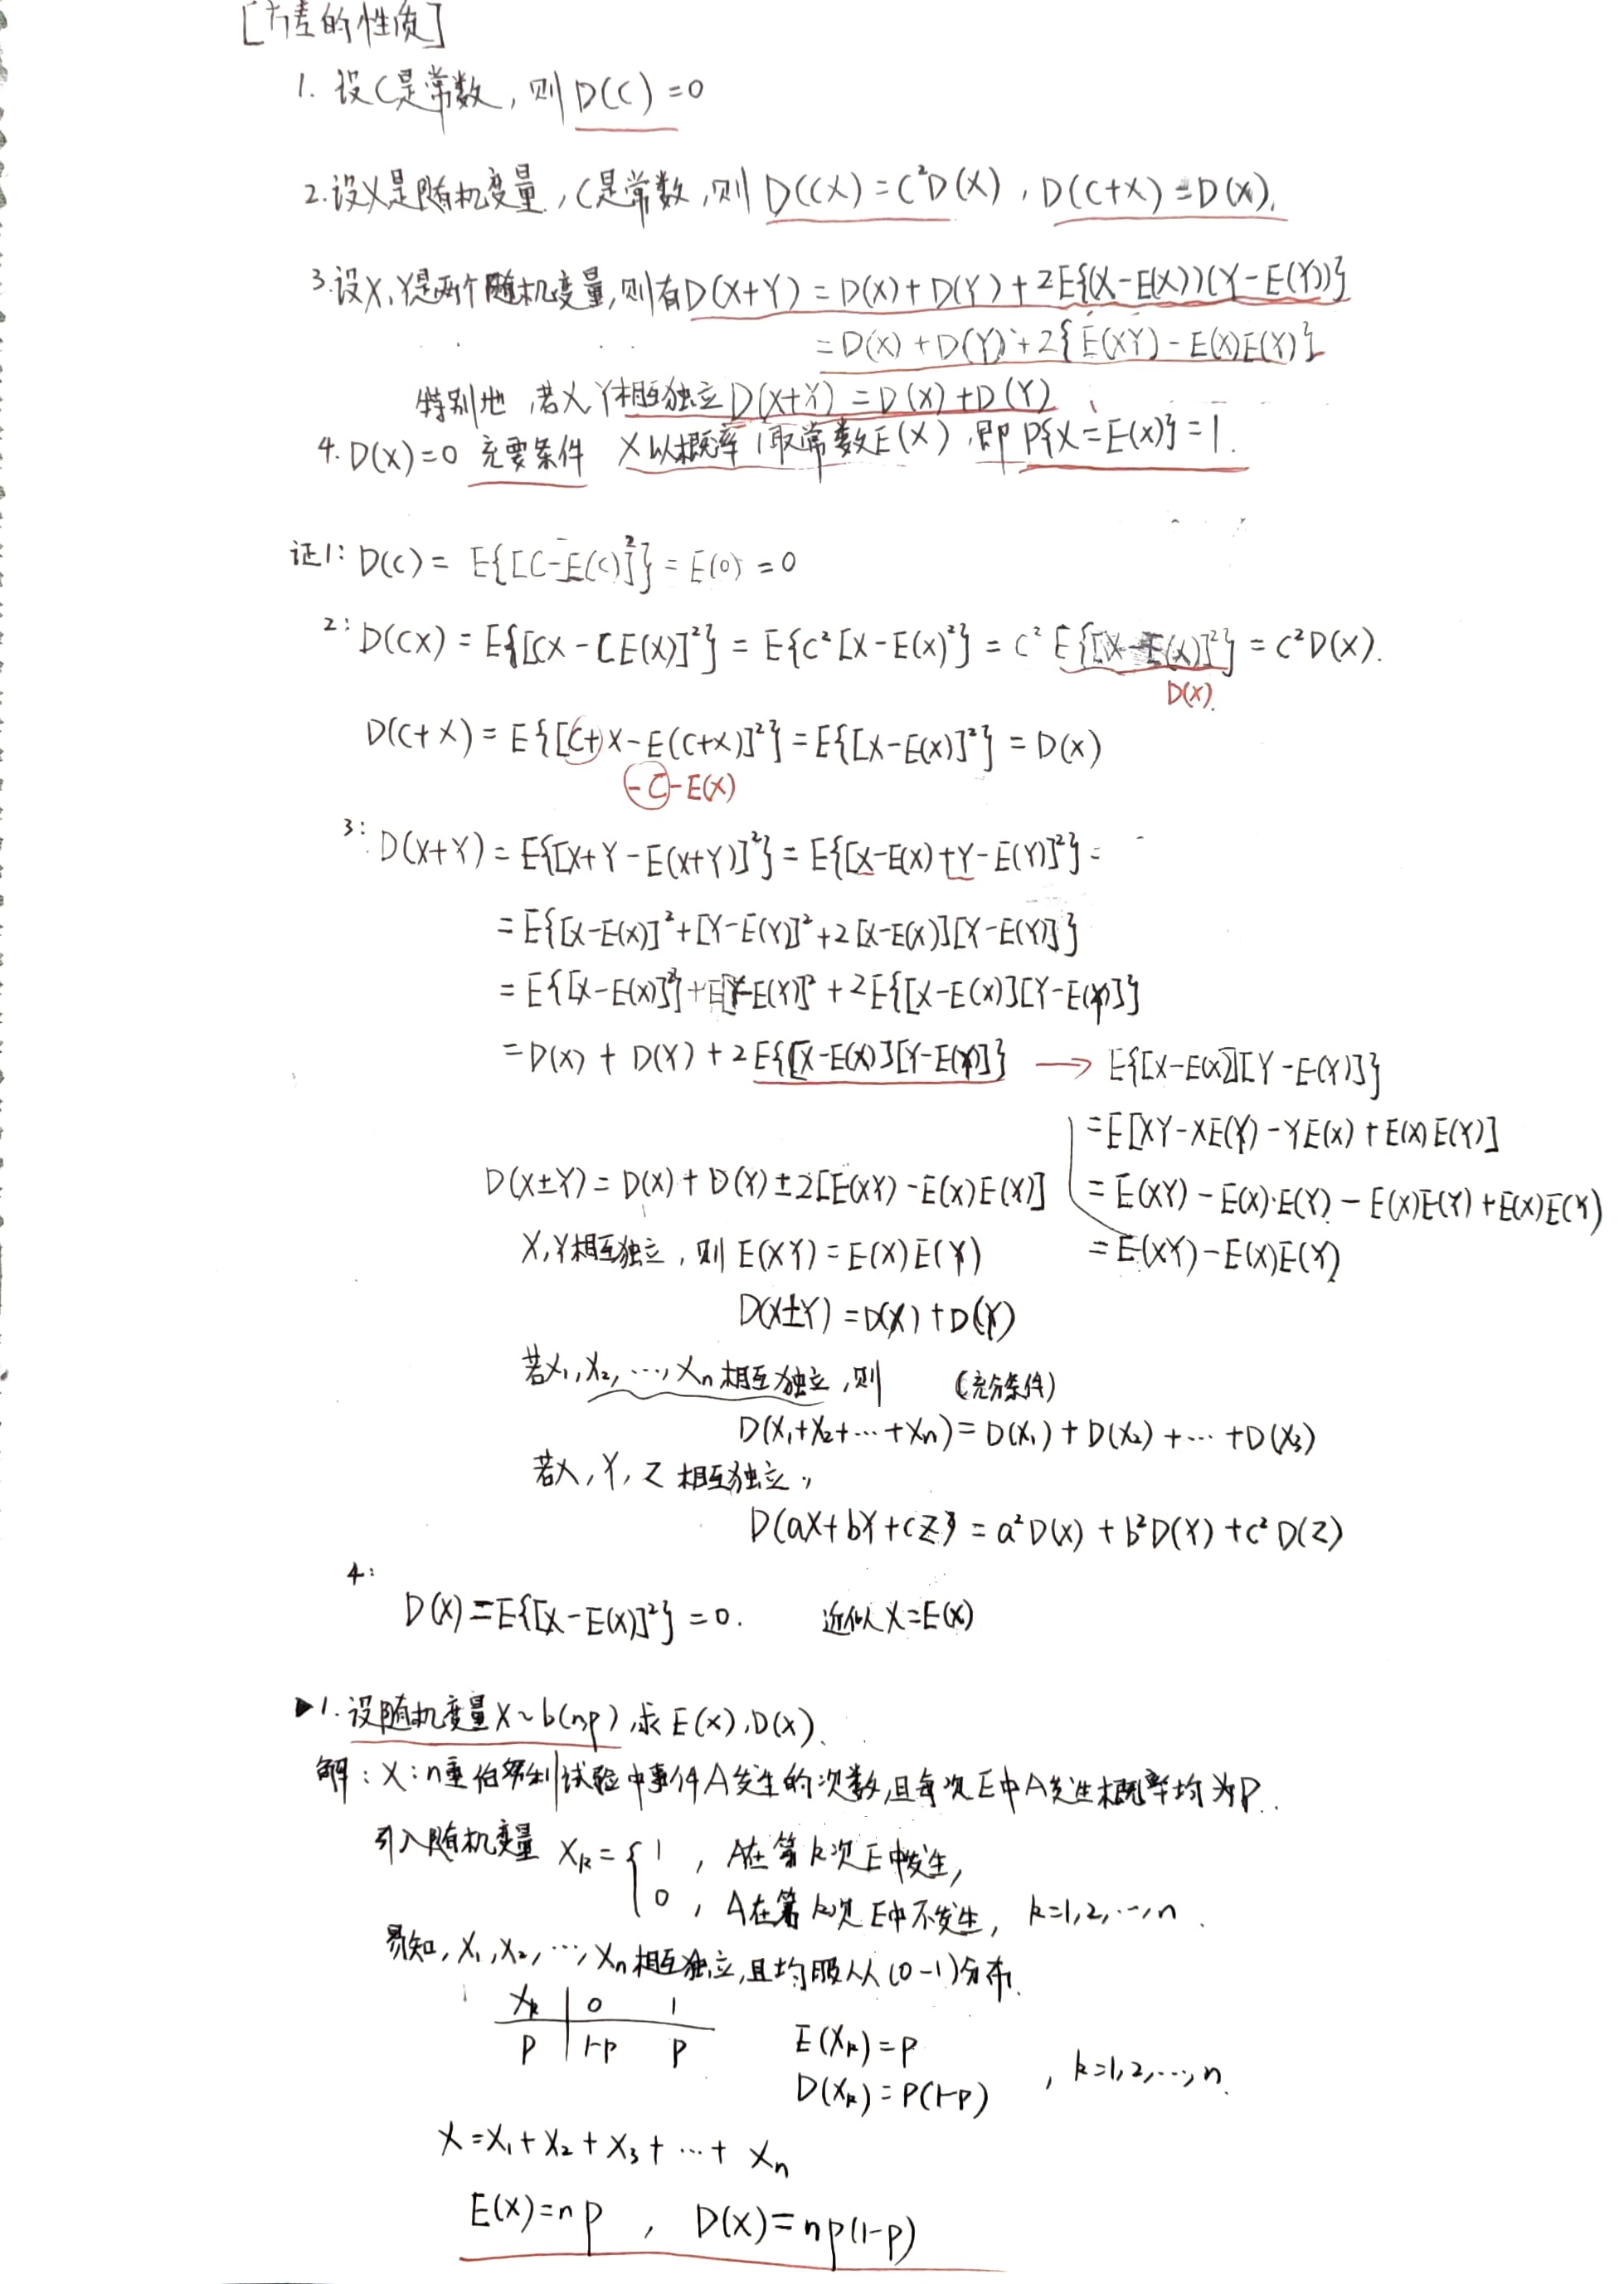 [方差的性质]
1. 设C是常数，则D(C)=0
2.设X是随机变量，C是常数，则D(CX)=C²D(X)，D(C+X)=D(X).
3.设X,Y是两个随机变量,则有D(X+Y)=D(X)+D(Y)+2E{(X-E(X))(Y-E(Y))}
=D(X)+D(Y)+2{E(XY)-E(X)E(Y)}
特别地，若X,Y相互独立D(X+Y)=D(X)+D(Y)
4.D(X)=0 充要条件 X以概率1取常数E(X)，即P{X=E(X)}=1.
证1: D(C)= E{[C-E(C)]²}=E(0)=0
2: D(CX)=E{[CX-CE(X)]²}=E{C²[X-E(X)²}=C²E{[X-E(X)]²}=C²D(X).
D(X).
D(C+X)=E{[C+X-E(C+X)]²}=E{[X-E(X)]²}=D(X)
-C-E(X)
3: D(X+Y)=E{[X+Y-E(X+Y)]²}=E{[X-E(X)+Y-E(Y)]²}=
=E{[X-E(X)]²+[Y-E(Y)]²+2[X-E(X)][Y-E(Y)]}
=E{[X-E(X)]²}+E[Y-E(Y)]²+2E{[X-E(X)][Y-E(Y)]}
=D(X)+D(Y)+2E{[X-E(X)][Y-E(Y)]} → E{[X-E(X)][Y-E(Y)]}
=E[XY-XE(Y)-YE(X)+E(X)E(Y)]
D(X±Y)=D(X)+D(Y)±2[E(XY)-E(X)E(Y)] =E(XY)-E(X)·E(Y)-E(X)E(Y)+E(X)E(Y)
X,Y相互独立，则E(XY)=E(X)E(Y) =E(XY)-E(X)E(Y)
D(X±Y)=D(X)+D(Y)
若X₁,X₂,…,Xₙ相互独立,则 (充分条件)
D(X₁+X₂+…+Xₙ)=D(X₁)+D(X₂)+…+D(X₃)
若X,Y,Z相互独立,
D(aX+bY+cZ)=a²D(X)+b²D(Y)+c²D(Z)
4:
D(X)=E{[X-E(X)]²}=0. 近似X=E(X)
▶1.设随机变量X~b(n,p),求E(X),D(X).
解:X:n重伯努利试验中事件A发生的次数,且每次E中A发生概率均为P.
引入随机变量 Xₖ={1，A在第k次E中发生,
0，A在第k次E中不发生, k=1,2,…,n.
易知,X₁,X₂,…,Xₙ相互独立,且均服从(0-1)分布.
Xₖ | 0 1
P | 1-p p E(Xₖ)=P
D(Xₖ)=P(1-P) ，k=1,2,…,n.
X=X₁+X₂+X₃+…+Xₙ
E(X)=np，D(X)=np(1-p)